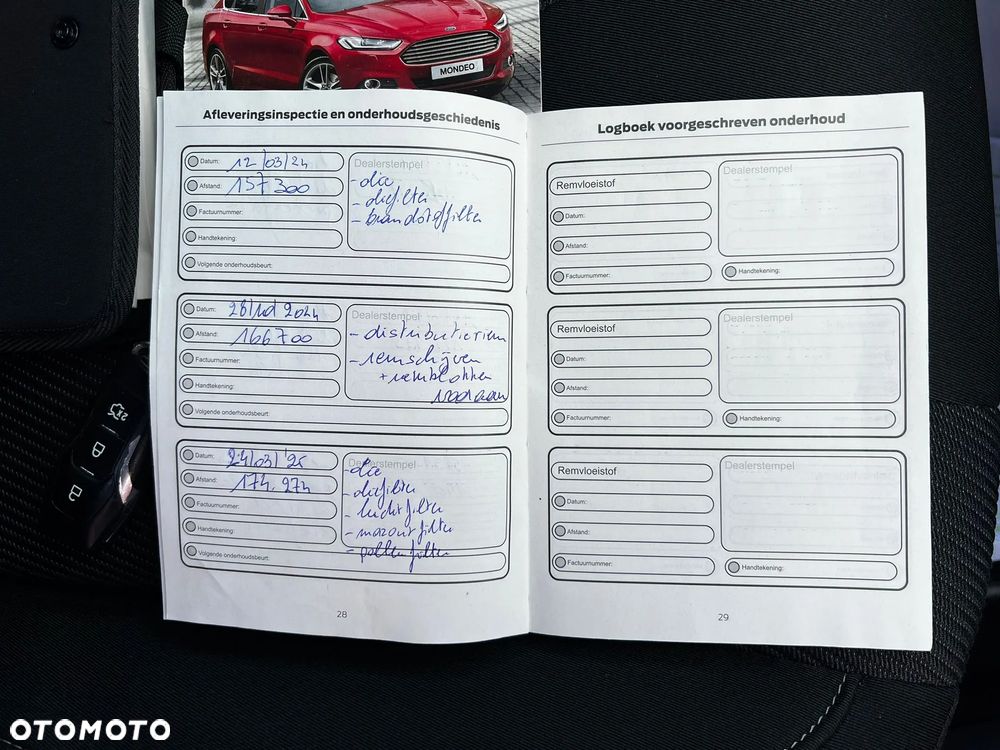 MONDEO
Afleveringsinspectie en onderhoudsgeschiedenis
Datum: 12/03/24
Afstand: 157300
Factuurnummer:
Handtekening:
Volgende onderhoudsbeurt:
Dealerstempel
- olie
- oliefilter
- brandstoffilter
Datum: 28/10/2024
Afstand: 166700
Factuurnummer:
Handtekening:
Volgende onderhoudsbeurt:
Dealerstempel
- distributieriem
- remschijven
+ remblokken
vooraan
Datum: 24/03/25
Afstand: 174.274
Factuurnummer:
Handtekening:
Volgende onderhoudsbeurt:
Dealerstempel
- olie
- oliefilter
- luchtfilter
- mazoutfilter
- pollenfilter
28
Logboek voorgeschreven onderhoud
Remvloeistof
Datum:
Afstand:
Factuurnummer:
Dealerstempel
Handtekening:
Remvloeistof
Datum:
Afstand:
Factuurnummer:
Dealerstempel
Handtekening:
Remvloeistof
Datum:
Afstand:
Factuurnummer:
Dealerstempel
Handtekening:
29
2x
OTOMOTO